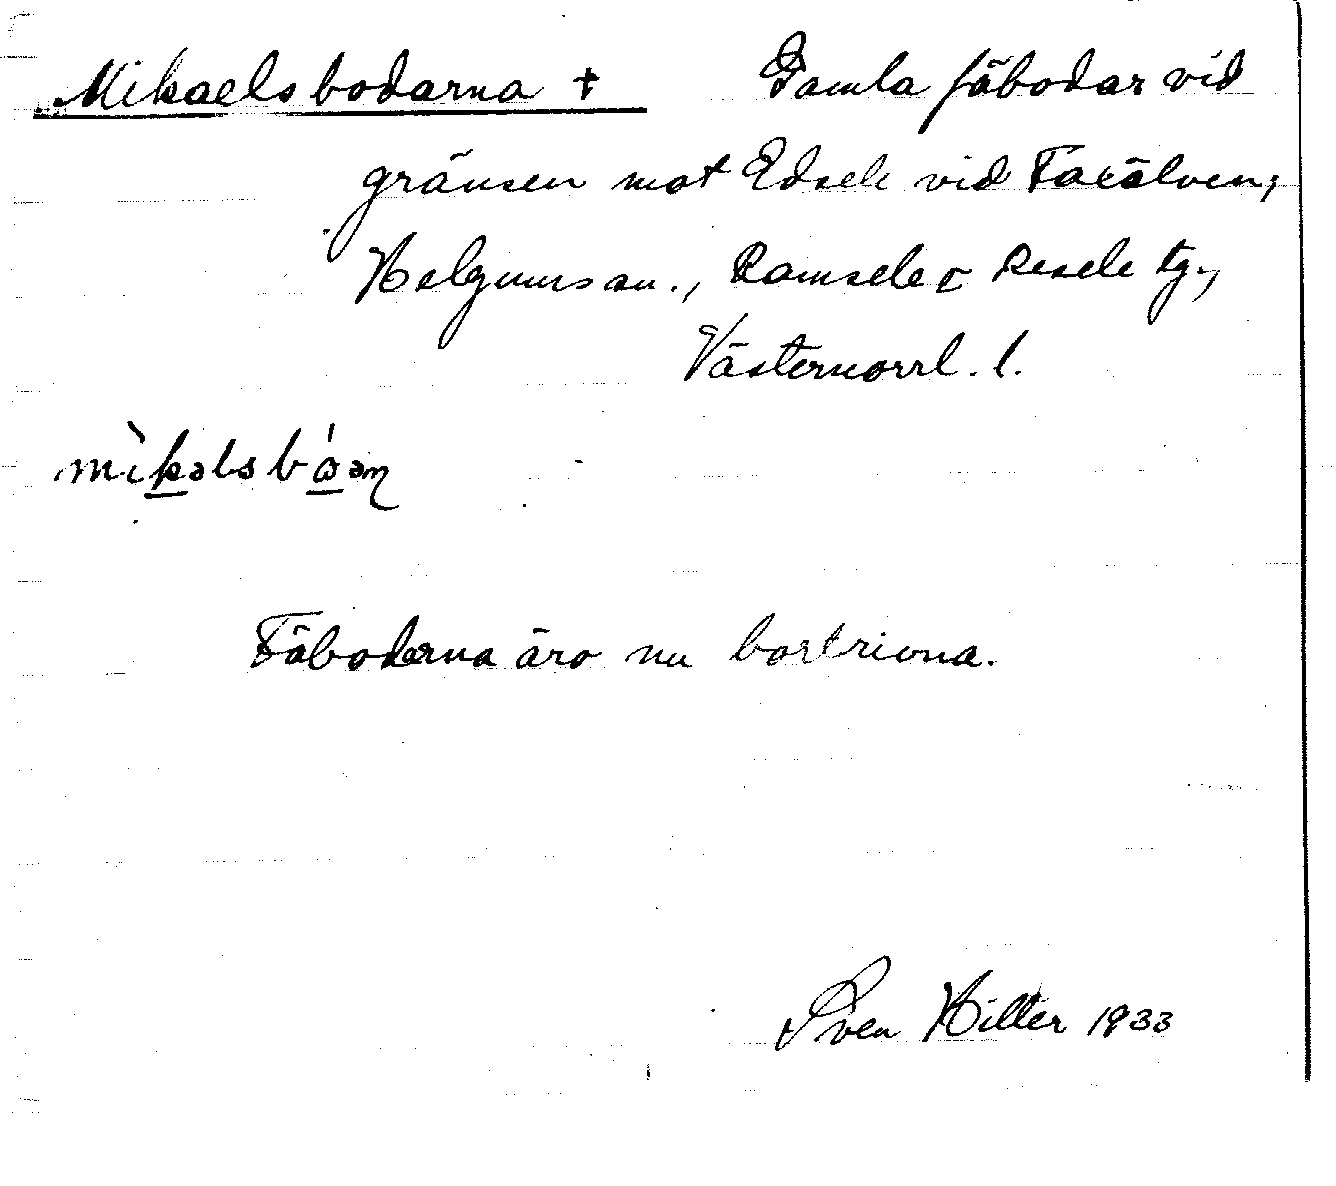 Mikaelsbodarna + Gamla fäbodar vid
gränsen mot Edsele vid Faxälven,
Helgums sn., Ramsele o Resele tg,
Västernorrl. l.
mìkəlsbóan
Fäbodarna äro nu bortrivna.
Sven Hiller 1933